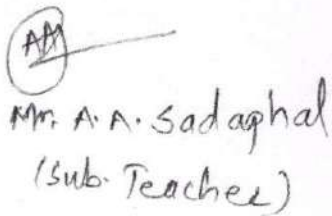 AM
Mr. A. A. Sadaphal
(Sub. Teacher)